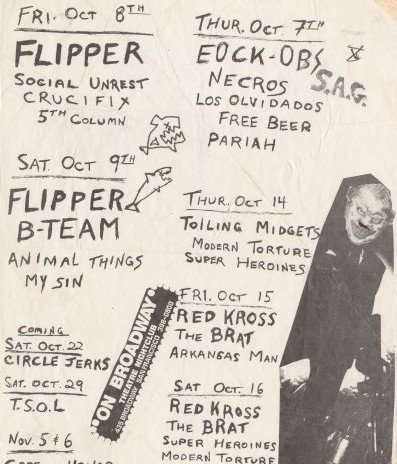 FRI. OCT 8TH
FLIPPER
SOCIAL UNREST
CRUCIFIX
5TH COLUMN
SAT. OCT 9TH
FLIPPER
B-TEAM
ANIMAL THINGS
MY SIN
COMING
SAT. OCT. 22
CIRCLE JERKS
SAT. OCT. 29
T.S.O.L
NOV. 5 & 6
THUR. OCT 7TH
S.A.G.
NECROS
LOS OLVIDADOS
FREE BEER
PARIAH
THUR. OCT 14
TOILING MIDGETS
MODERN TORTURE
SUPER HEROINES
"ON BROADWAY"
THEATRE NIGHTCLUB
435 BROADWAY SAN FRANCISCO
FRI. OCT 15
RED KROSS
THE BRAT
ARKANSAS MAN
SAT OCT. 16
RED KROSS
THE BRAT
SUPER HEROINES
MODERN TORTURE